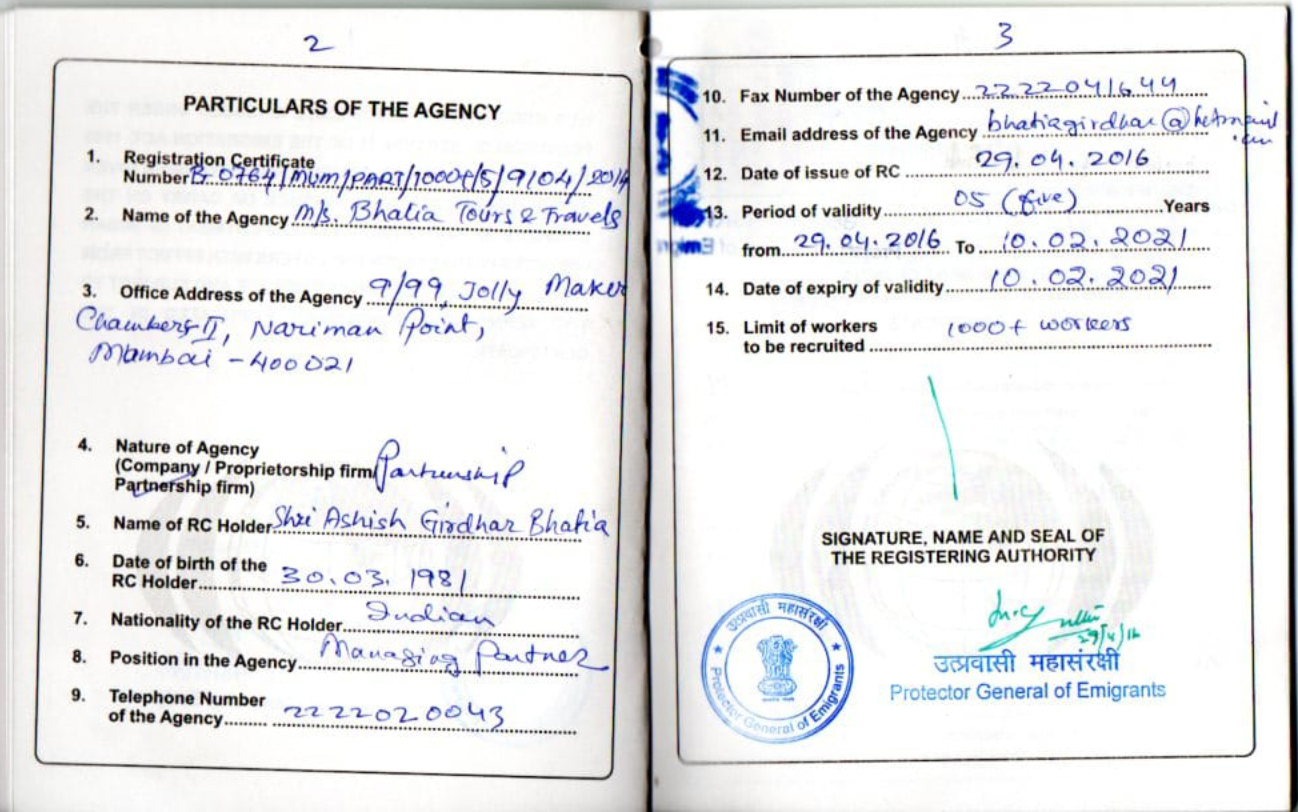 2
PARTICULARS OF THE AGENCY
1. Registration Certificate
Number B-0764/MUM/PART/1000+/5/9104/2014
2. Name of the Agency M/s. Bhatia Tours & Travels
3. Office Address of the Agency 9/99, Jolly Maker
Chambers-II, Nariman Point,
Mumbai - 400021
4. Nature of Agency
(Company / Proprietorship firm/ Partnership
Partnership firm)
5. Name of RC Holder Shri Ashish Girdhar Bhatia
6. Date of birth of the
RC Holder 30.03.1981
7. Nationality of the RC Holder Indian
8. Position in the Agency Managing Partner
9. Telephone Number
of the Agency 2222020043
3
10. Fax Number of the Agency 2222041644
11. Email address of the Agency bhatiagirdhar@hotmail
.com
12. Date of issue of RC 29.04.2016
13. Period of validity 05 (five) Years
from 29.04.2016 To 10.02.2021
14. Date of expiry of validity 10.02.2021
15. Limit of workers 1000+ workers
to be recruited
SIGNATURE, NAME AND SEAL OF
THE REGISTERING AUTHORITY
29/4/16
उत्प्रवासी महासंरक्षी
Protector General of Emigrants
उत्प्रवासी महासंरक्षी
Protector General of Emigrants